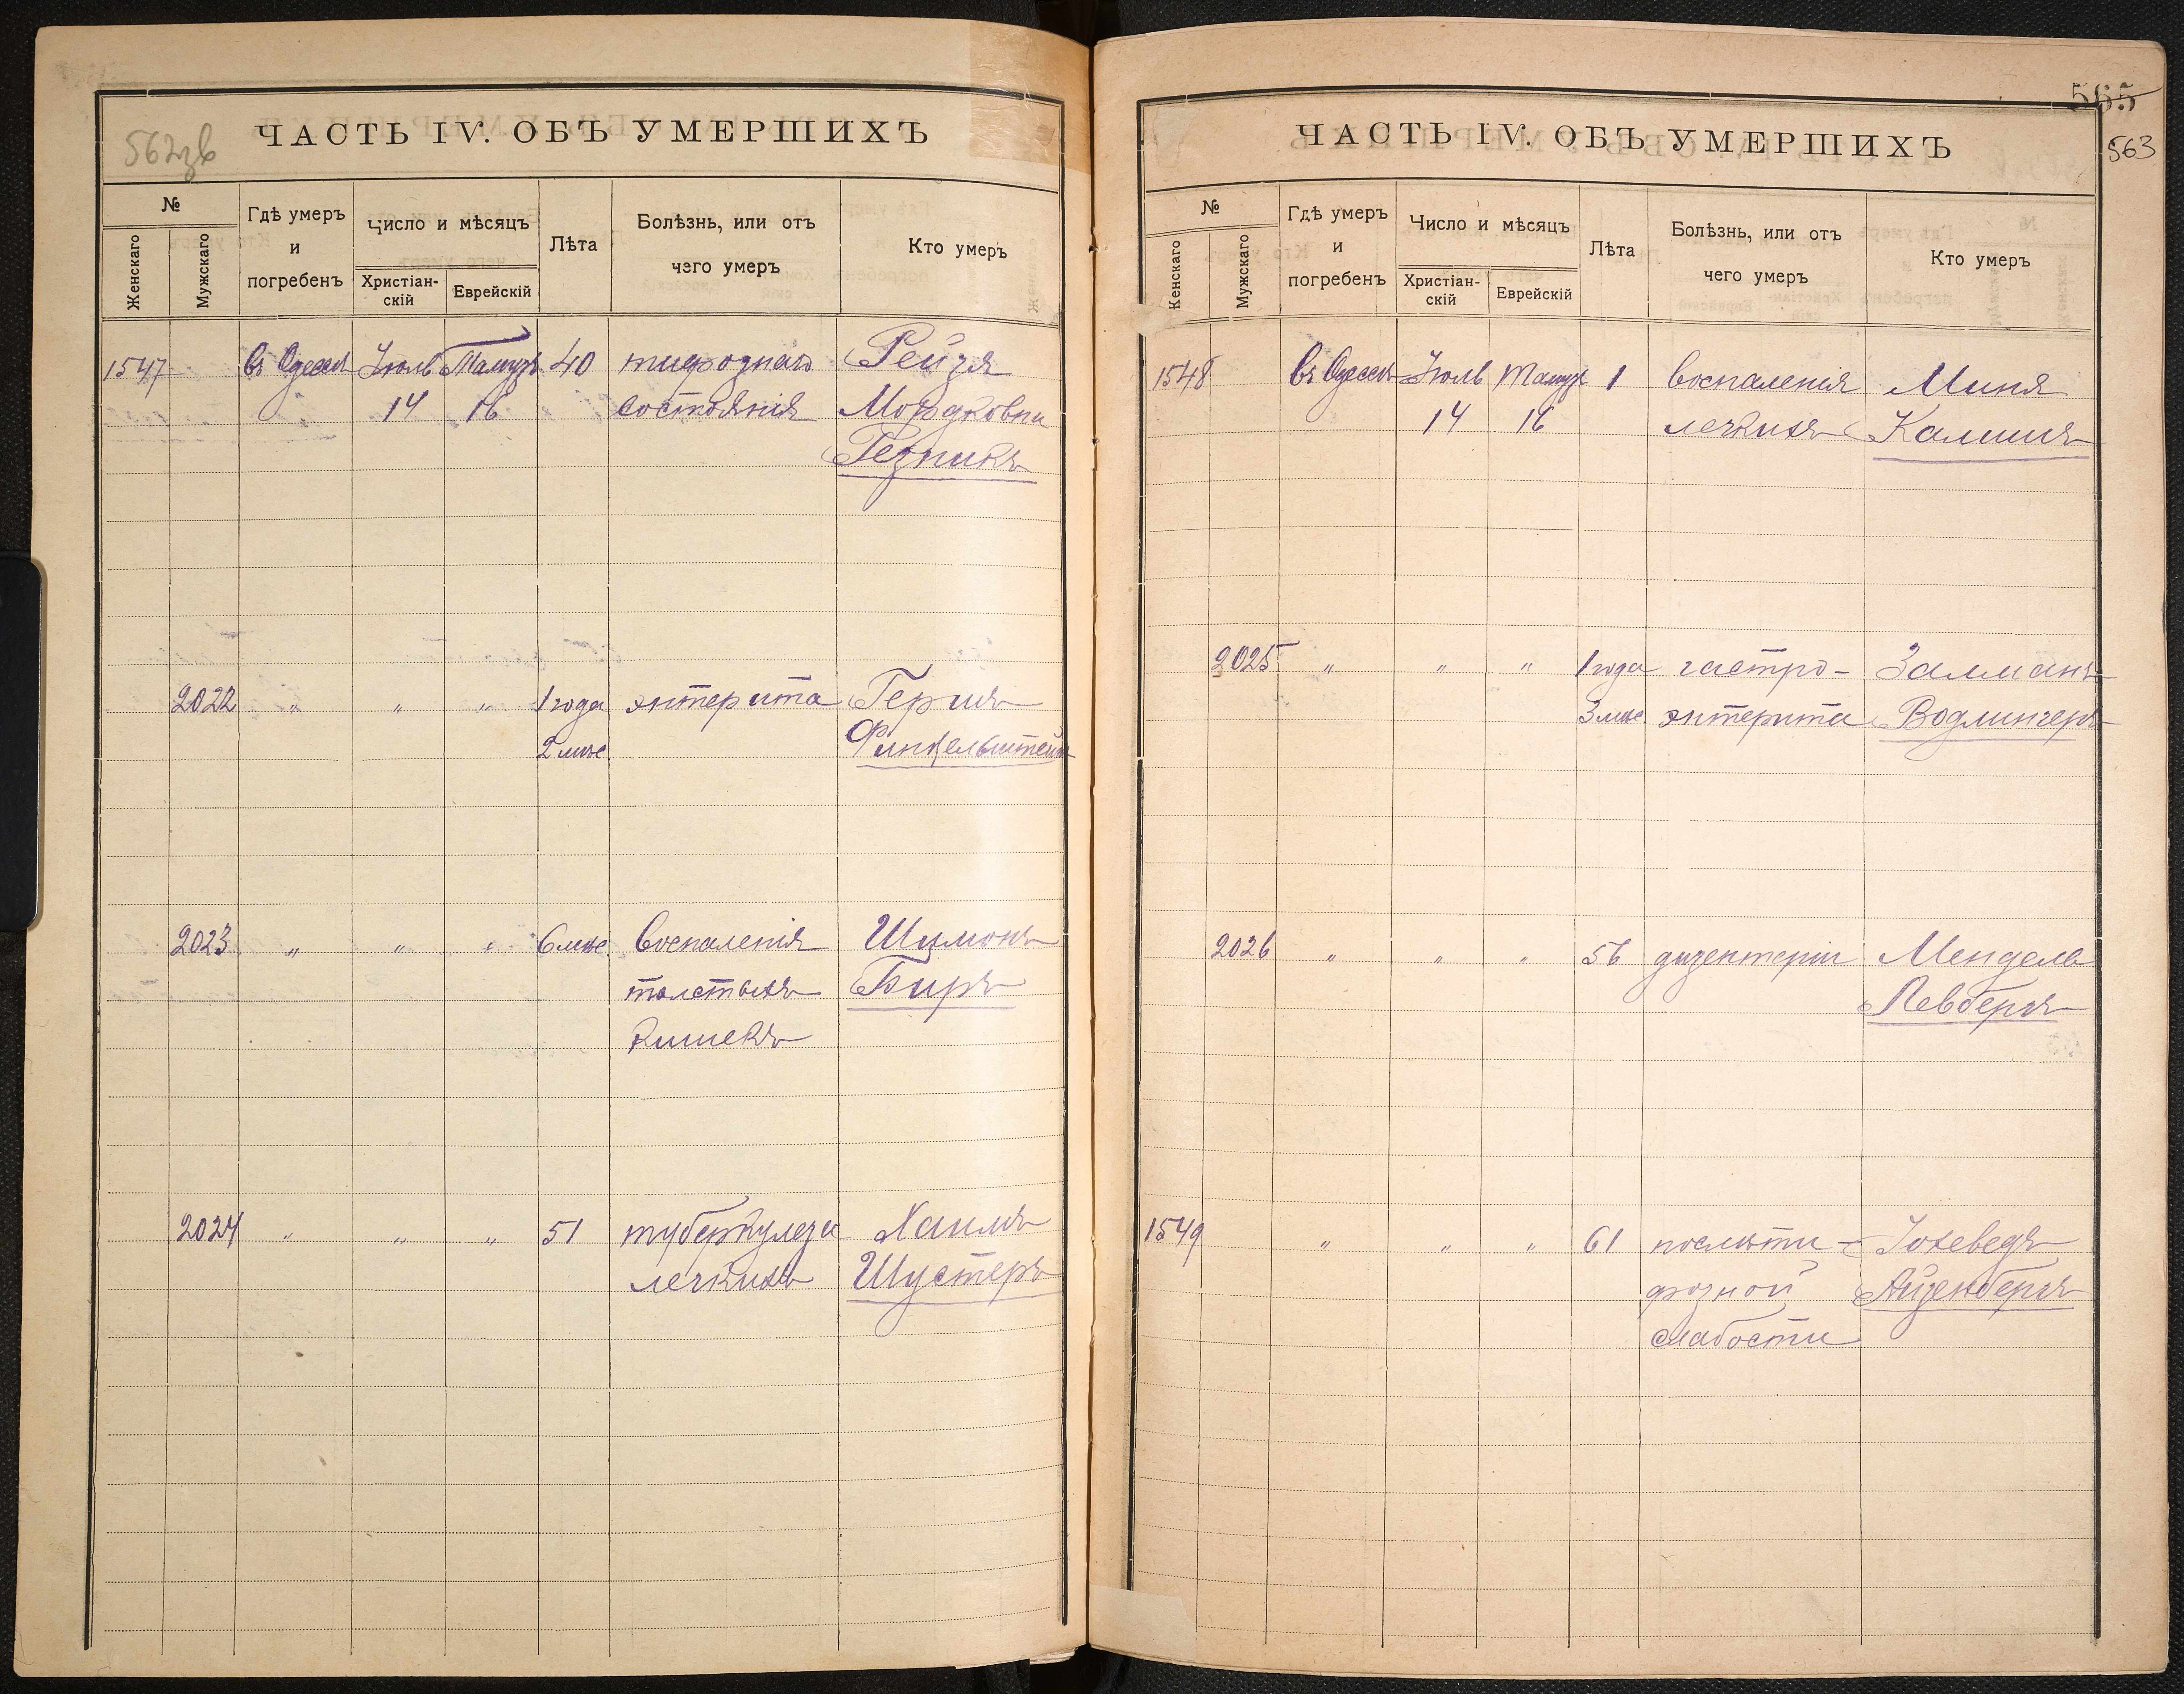 562зв
ЧАСТЬ IV. ОБЪ УМЕРШИХЪ
№
Женскаго
Мужскаго
Гдѣ умеръ
и
погребенъ
Число и мѣсяцъ
Христіан-
скій
Еврейскій
Лѣта
Болѣзнь, или отъ
чего умеръ
Кто умеръ
1547 въ Одессѣ Іюль Тамузъ 40 тифознаго Рейзя
14 16 состоянія Мордковна
Резникъ
2022 „ „ „ 1 года энтерита Гершъ
2 мѣс Финкельштейнъ
2023 „ „ „ 6 мѣс. воспаленія Шимонъ
толстыхъ Биръ
кишекъ
2024 „ „ „ 51 туберкулеза Хаимъ
легкихъ Шустеръ
565
563
ЧАСТЬ IV. ОБЪ УМЕРШИХЪ
№
Женскаго
Мужскаго
Гдѣ умеръ
и
погребенъ
Число и мѣсяцъ
Христіан-
скій
Еврейскій
Лѣта
Болѣзнь, или отъ
чего умеръ
Кто умеръ
1548 въ Одессѣ Іюль Тамузъ 1 воспаленія Миня
14 16 легкихъ
2025 „ „ „ 1 года гастро- Залманъ
3 мѣс энтерита Водлингеръ
2026 „ „ „ 56 дизентеріи Мендель
Левбергъ
1549 „ „ „ 61 послѣти- Іохеведъ
фозной Айзенбергъ
слабости